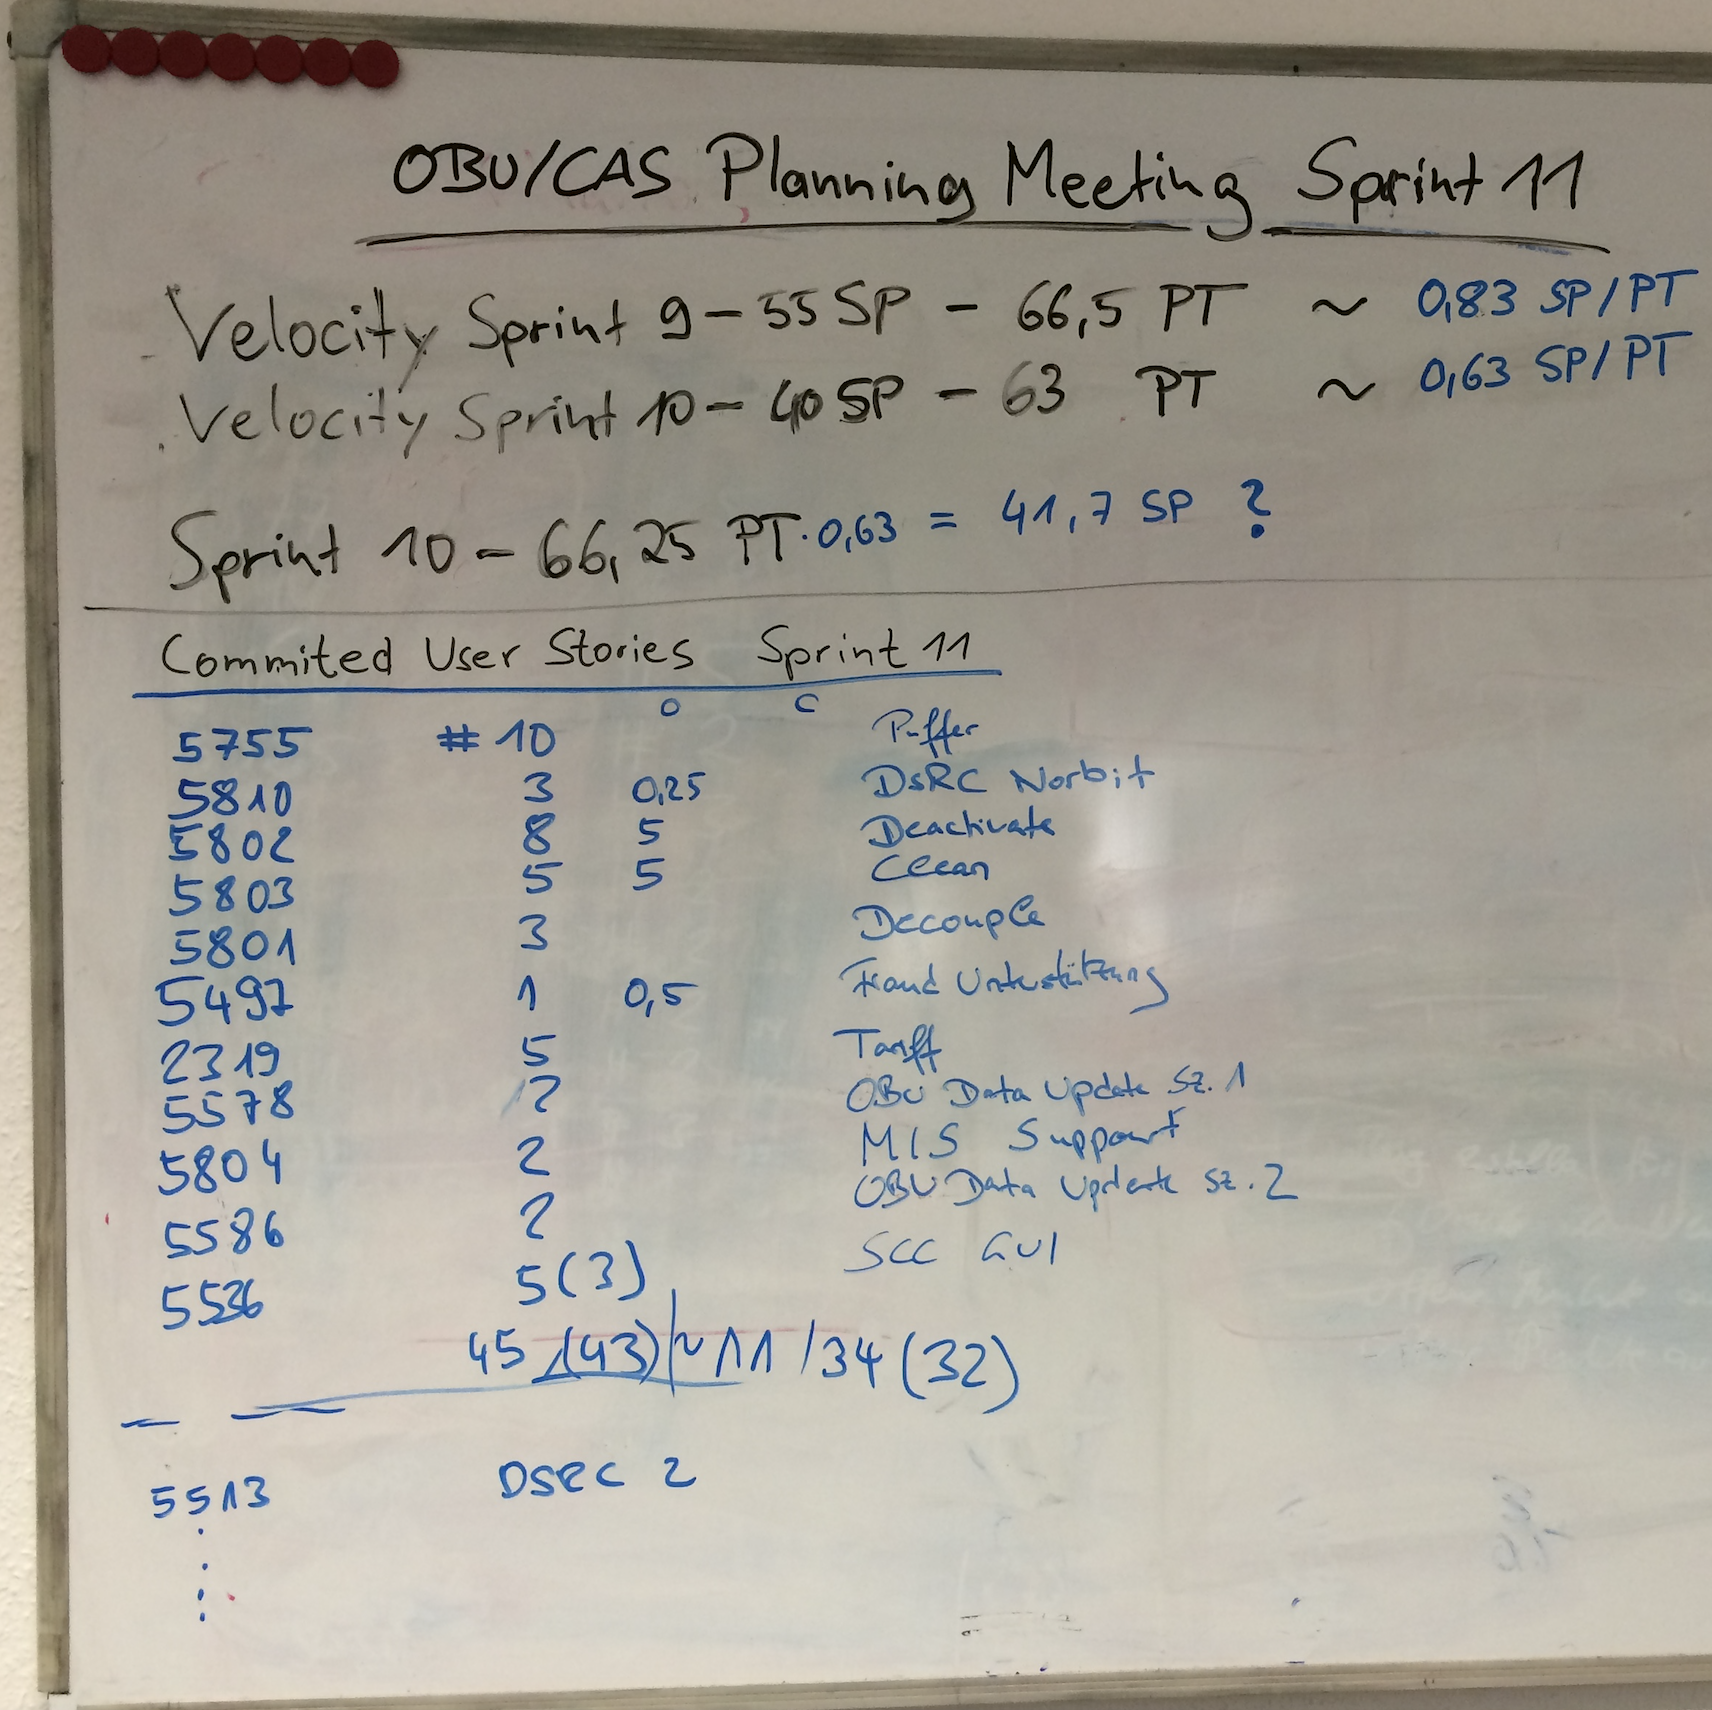 OBU/CAS Planning Meeting Sprint 11
Velocity Sprint 9 – 55 SP – 66,5 PT ~ 0,83 SP/PT
Velocity Sprint 10 – 40 SP – 63 PT ~ 0,63 SP/PT
Sprint 10 – 66,25 PT · 0,63 = 41,7 SP ?
Commited User Stories Sprint 11
O C
5755 # 10 Puffer
5810 3 0,25 DSRC Norbit
5802 8 5 Deactivate
5803 5 5 Clean
5801 3 Decouple
5497 1 0,5 Fraud Unterstützung
2319 5 Tariff
5578 2 OBU Data Update Sz. 1
5804 2 MIS Support
5586 2 OBU Data Update Sz. 2
5536 5 (3) SCC GUI
45 (43) | ~ 11 / 34 (32)
5513 DSRC 2